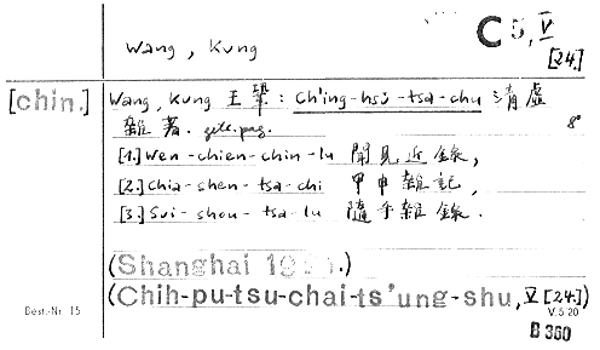 Wang, Kung
C 5, V
[24.]
[chin.]
Wang, Kung 王鞏: Ch'ing-hsü-tsa-chu 清虛
雜著. getr. pag. 8°
[1.] Wen-chien-chin-lu 聞見近錄,
[2.] Chia-shen-tsa-chi 甲申雜記,
[3.] Sui-shou-tsa-lu 隨手雜錄.
(Shanghai
(Chih-pu-tsu-chai-ts'ung-shu, V [24.])
Best.-Nr. 15
V. 5 20
B 360